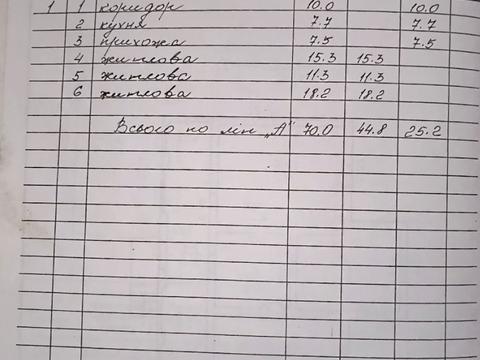 1 1 коридор 10.0 10.0
2 кухня 7.7 7.7
3 прихожа 7.5 7.5
4 житлова 15.3 15.3
5 житлова 11.3 11.3
6 житлова 18.2 18.2
Всього по літ „А" 70.0 44.8 25.2